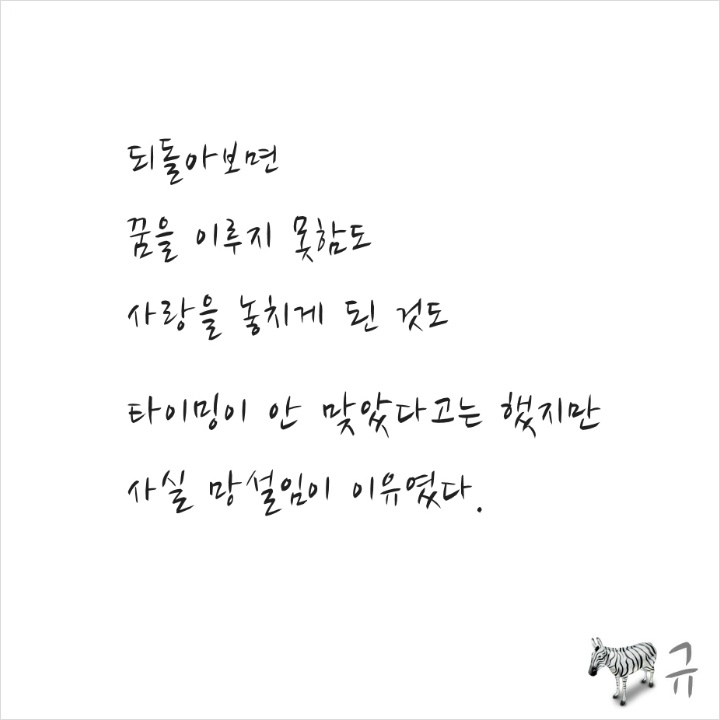 되돌아보면
꿈을 이루지 못함도
사랑을 놓치게 된 것도
타이밍이 안 맞았다고는 했지만
사실 망설임이 이유였다.
규